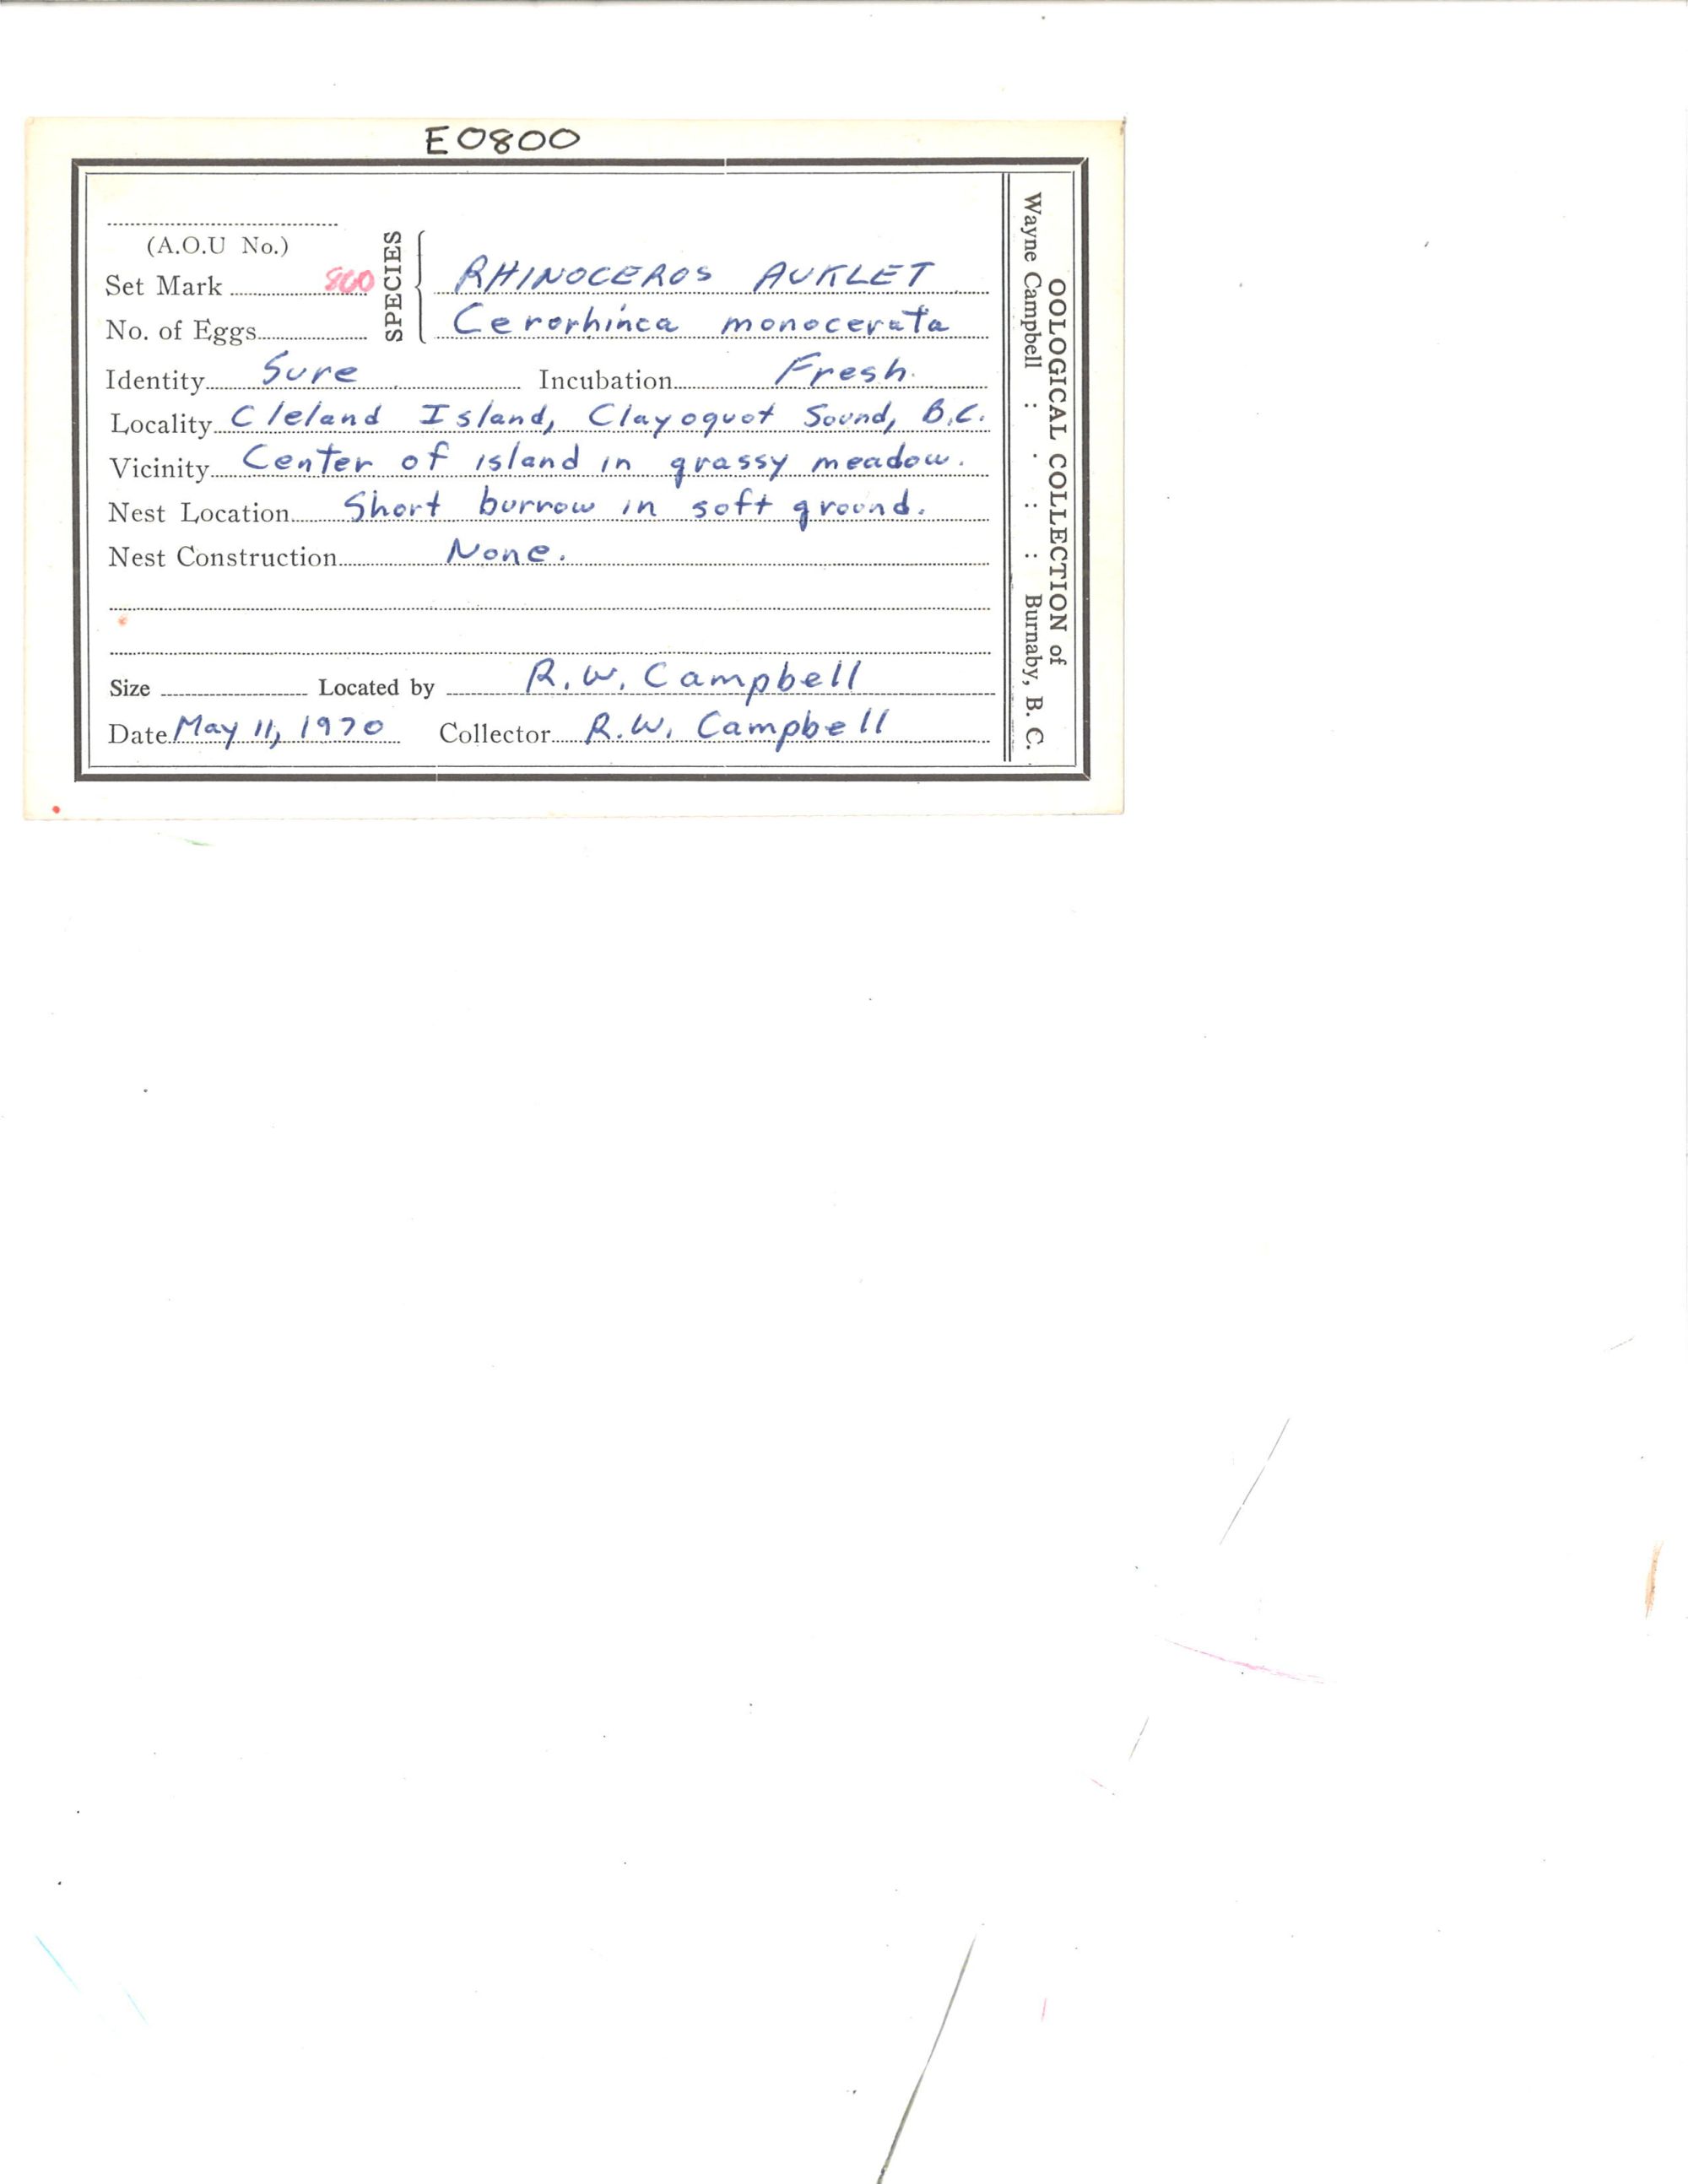 E0800
(A.O.U No.)
Set Mark 800
No. of Eggs
SPECIES
RHINOCEROS AUKLET
Cerorhinca monocerata
Identity Sure Incubation Fresh.
Locality Cleland Island, Clayoquot Sound, B.C.
Vicinity Center of island in grassy meadow.
Nest Location Short burrow in soft ground.
Nest Construction None.
Size Located by R.W. Campbell
Date May 11, 1970 Collector R.W. Campbell
OOLOGICAL COLLECTION of
Wayne Campbell : : : Burnaby, B. C.